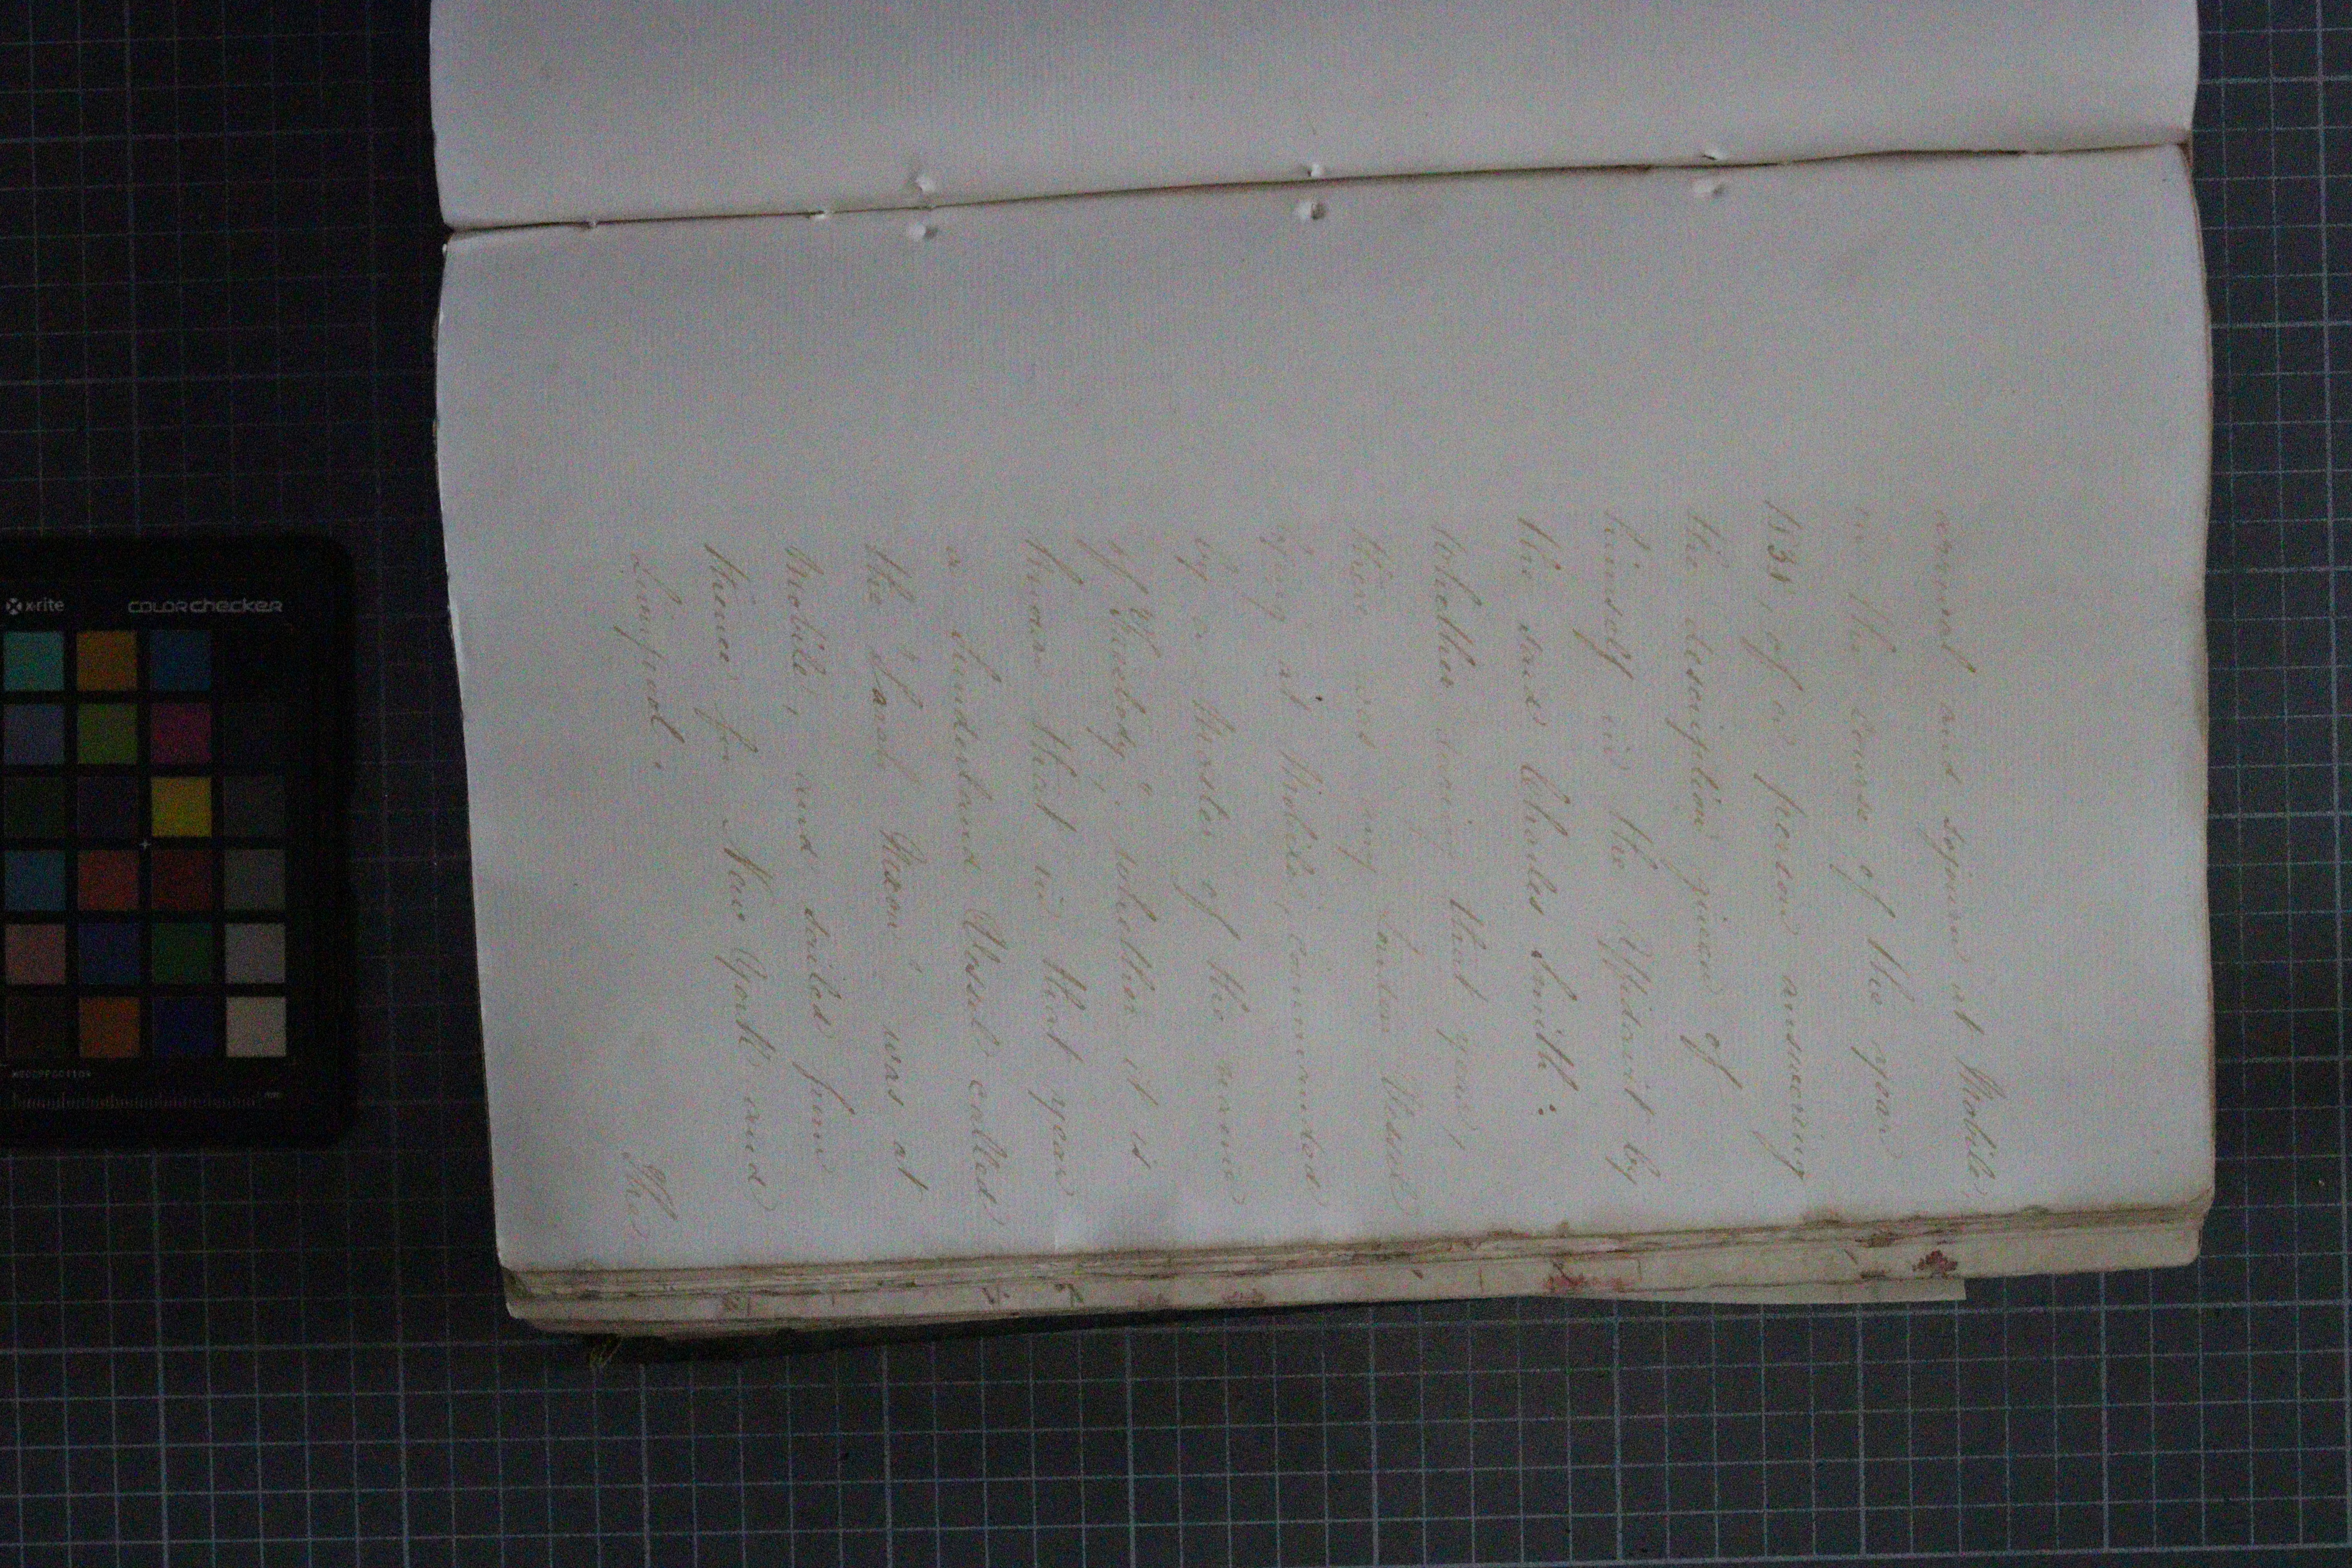 arrival and sojourn at Mobile,
in the course of the year
1838, of a person answering
the description given of
himself in the Affidavit by
the said Charles Smith:
whether during that year,
there was any London Vessel
lying at Mobile, commanded
by a Master of the name
of "Freebody": whether it is
known that in that year
a Sunderland Vessel called
the "Sarah Nixon" was at
Mobile, and sailed from
thence for New York and
Liverpool.
The
x-rite
colorchecker